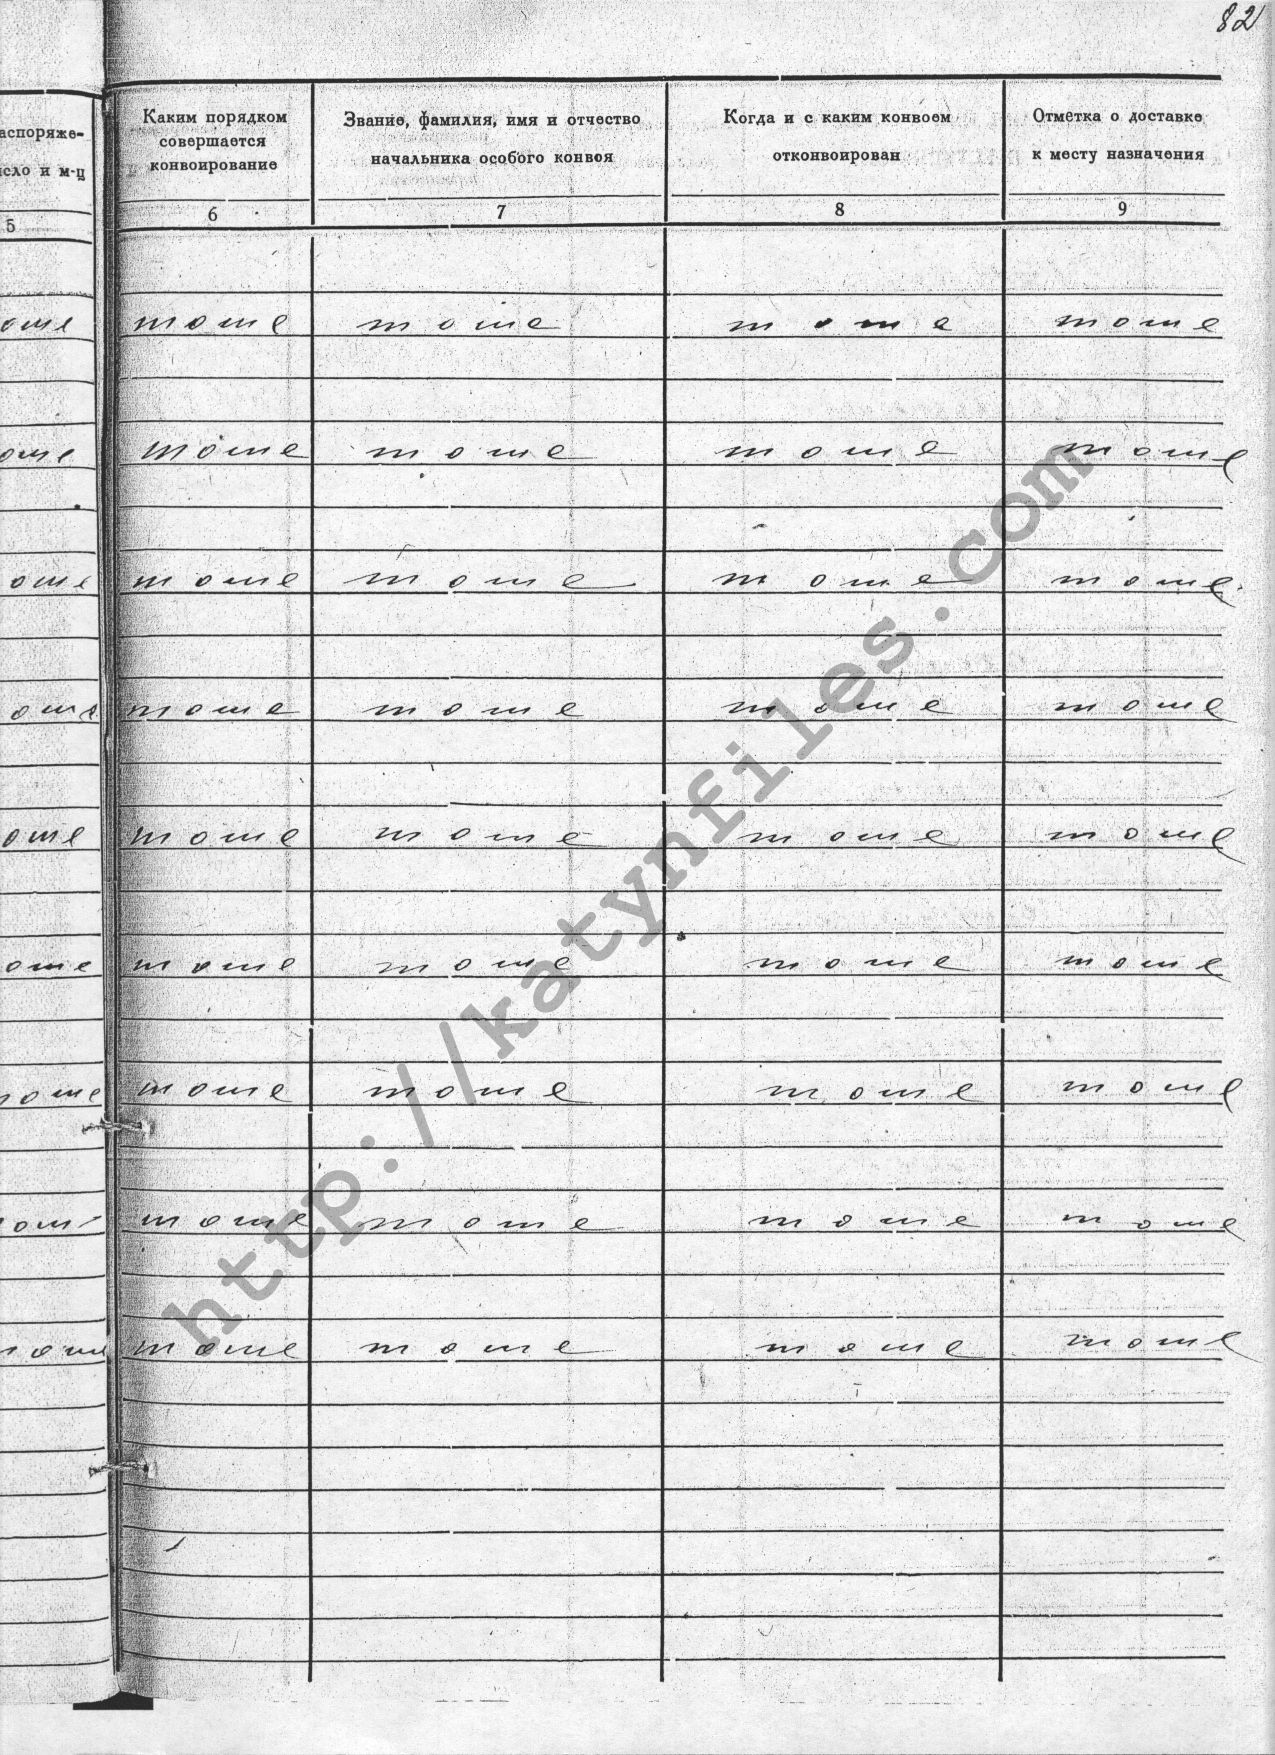 82
аспоряже-
исло и м-ц
5
Каким порядком
совершается
конвоирование
6
Звание, фамилия, имя и отчество
начальника особого конвоя
7
Когда и с каким конвоем
отконвоирован
8
Отметка о доставке
к месту назначения
9
оше тоше тоше тоше тоше
оше тоше тоше тоше тоше
оше тоше тоше тоше тоше
оше тоше тоше тоше тоше
оше тоше тоше тоше тоше
оше тоше тоше тоше тоше
тоше тоше тоше тоше тоше
тоше тоше тоше тоше тоше
тоше тоше тоше тоше тоше
http://katynfiles.com